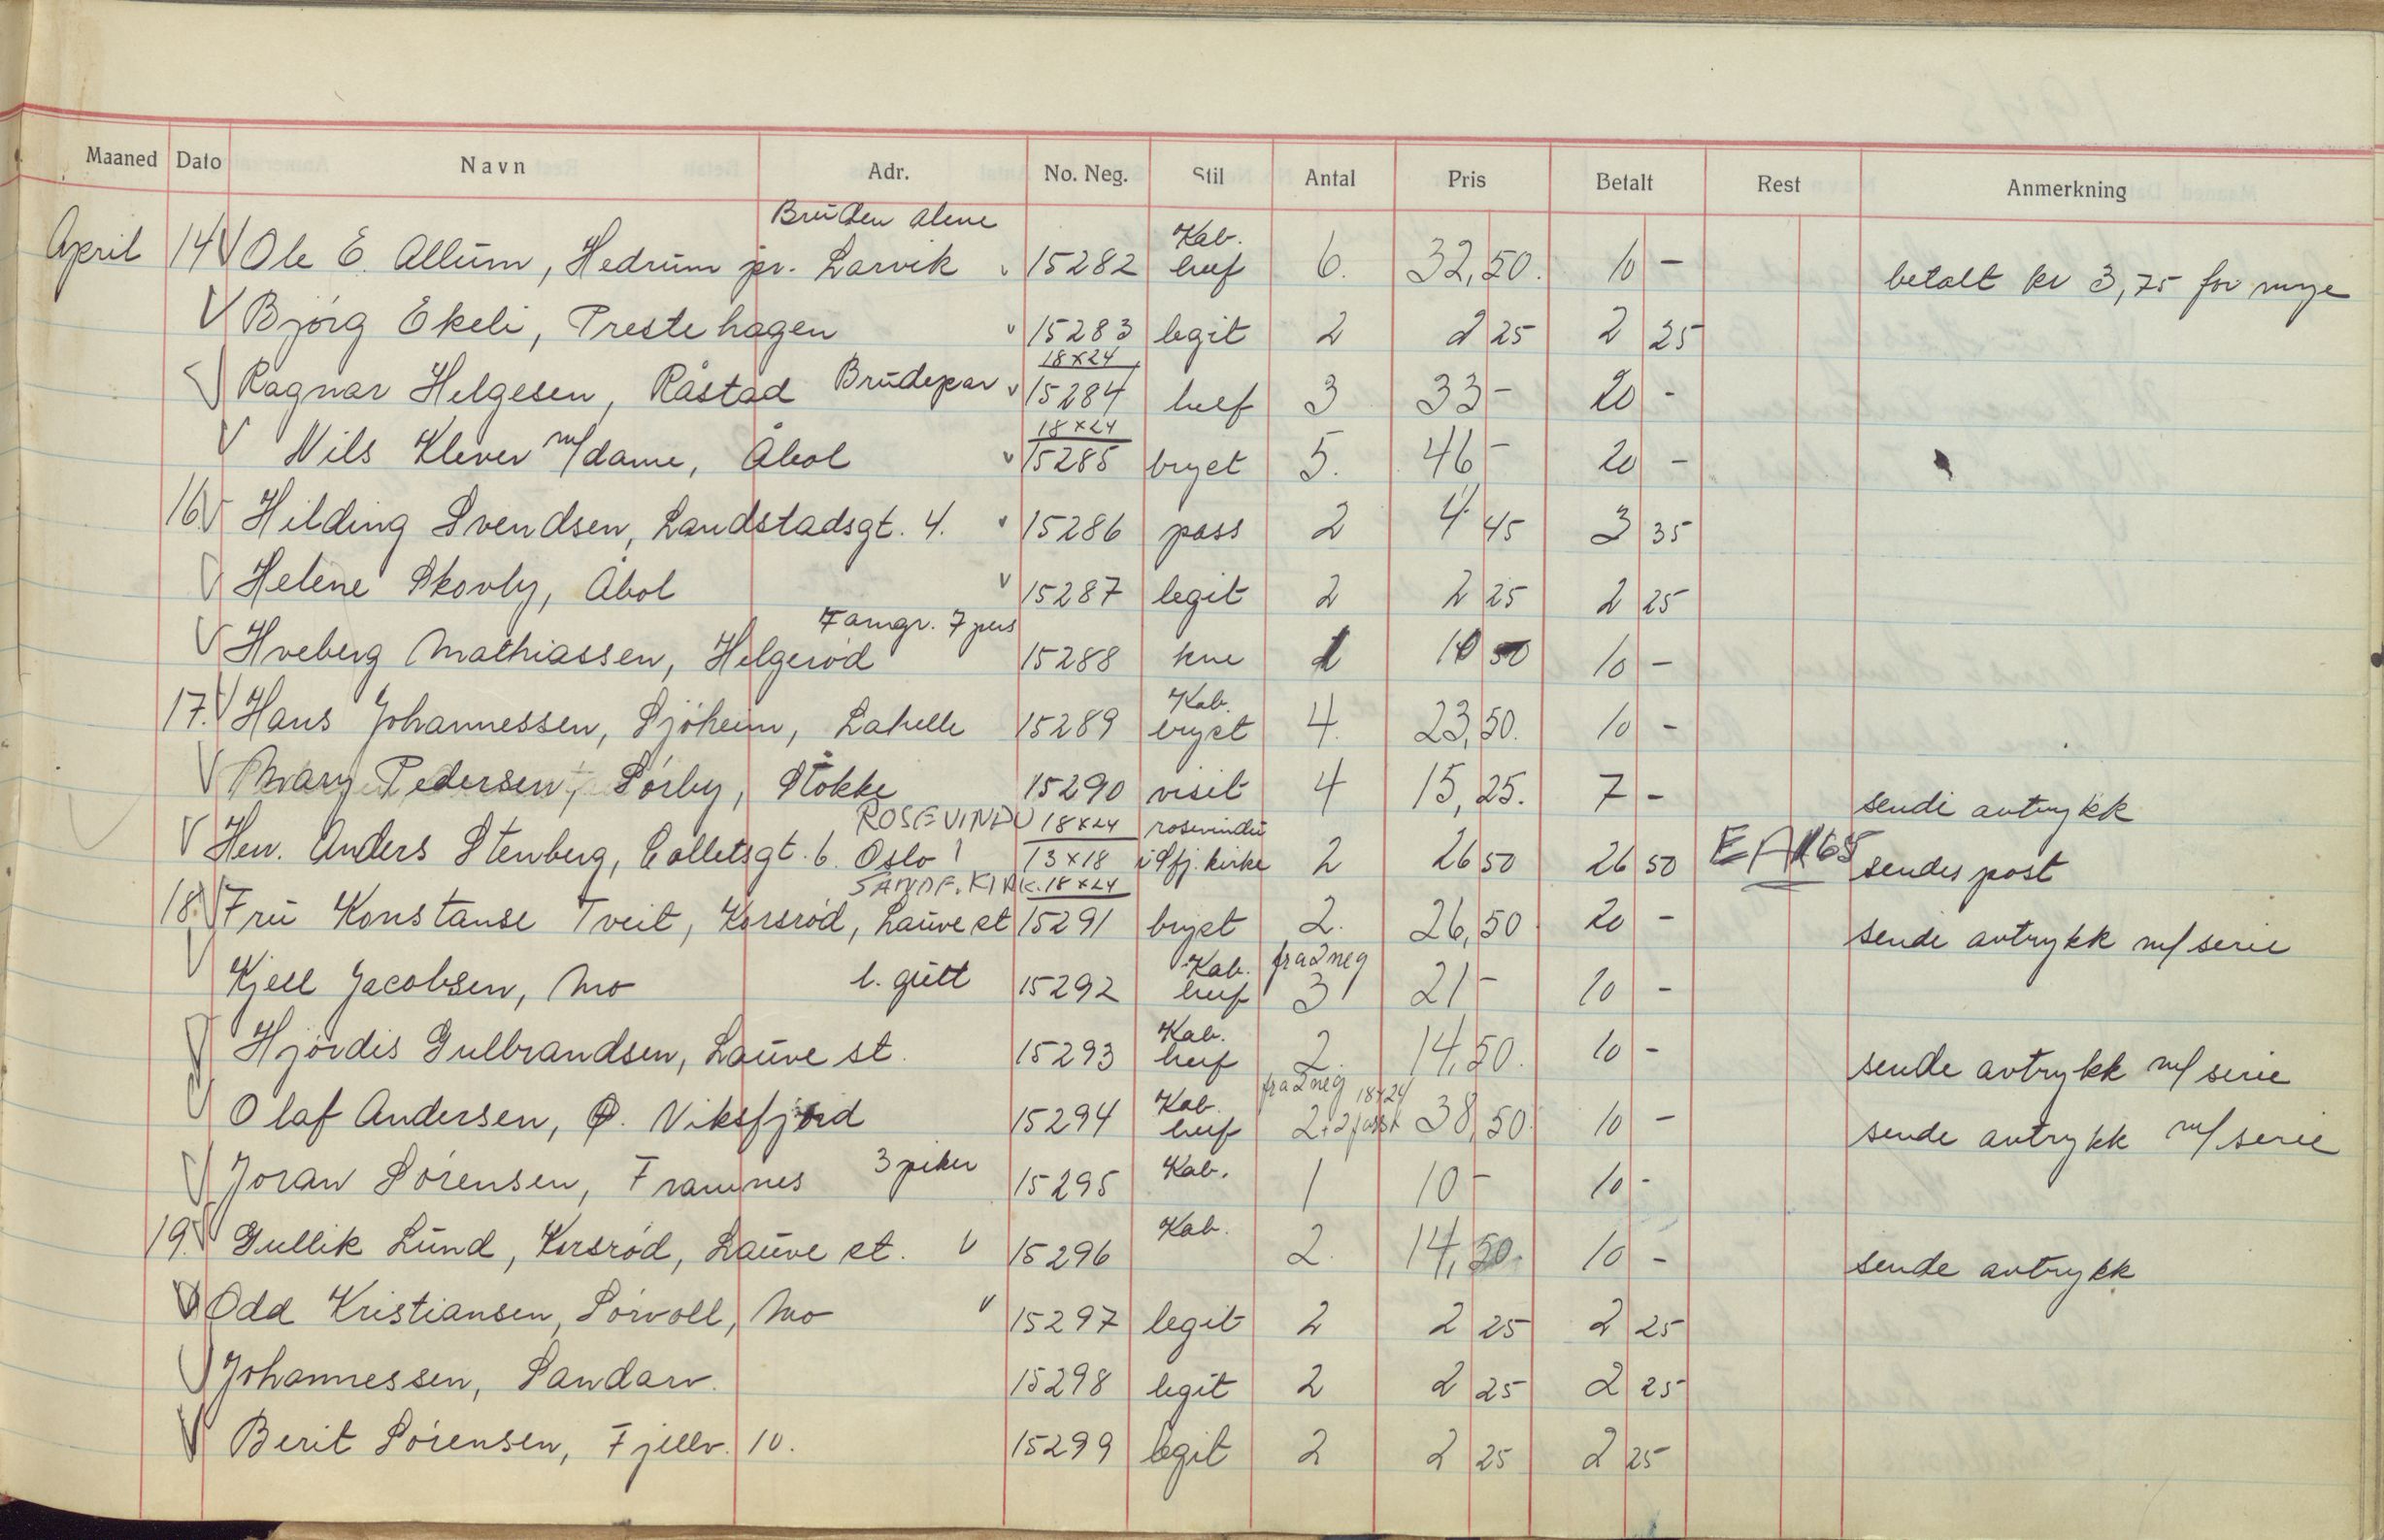 Maaned Dato Navn Adr. No. Neg. Stil Antal Pris Betalt Rest Anmerkning
Bruden alene Kab.
April 14 Ole E. Allum, Hedrum pr. Larvik 15282 6. 32,50. 10 - betalt kr 3,75 for mye
Bjørg Ekeli, Prestehagen 15283 legit 2 2 25 2 25
18x24
Ragnar Helgesen, Råstad Brudepar 15284 3 33 - 20 -
18x24
Nils Klever m/dame, Åbol 15285 bryst 5. 46 - 20 -
16. Hilding Svendsen, Landstadsgt. 4. 15286 pass 2 4 45 3 35
Helene Skovly, Åbol 15287 legit 2 2 25 2 25
Famgr. 7 pers
Hveberg Mathiassen, Helgerød 15288 kne 1 10 50 10 -
Kab.
17. Hans Johannessen, Sjøheim, Lahelle 15289 bryst 4. 23,50. 10 -
Mary Pedersen, Sørby, Stokke 15290 visit 4 15,25. 7 - sende avtrykk
ROSEVINDU 18x24 rosevindu
Herr. Anders Stenberg, Colletsgt. 6. Oslo 13x18 i Sfj. kirke 2 26 50 26 50 sendes post
SANDF. KIRK. 18x24
18. Fru Konstanse Tveit, Korsrød, Lauve st 15291 bryst 2. 26,50 20 - sende avtrykk m/ serie
Kab. fra 2 neg
Kjell Jacobsen, Mo l. gutt 15292 3 21 - 10 -
Kab.
Hjørdis Gulbrandsen, Lauve st. 15293 2. 14,50. 10 - sende avtrykk m/ serie
Kab. fra 2 neg 18x24
Olaf Andersen, Ø. Viksfjord 15294 38,50. 10 - sende avtrykk m/ serie
Joran Sørensen, Framnes 3 piker 15295 Kab. 1 10 - 10 -
19. Gullik Lund, Korsrød, Lauve st. 15296 Kab. 2. 14,50. 10 - sende avtrykk
Odd Kristiansen, Sørvoll, Mo 15297 legit 2 2 25 2 25
Johannessen, Sandarv. 15298 legit 2 2 25 2 25
Berit Sørensen, Fjellv. 10. 15299 legit 2 2 25 2 25